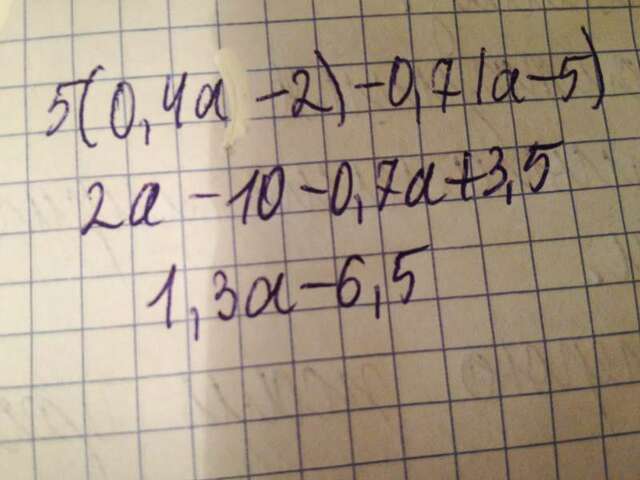 5(0,4a -2)-0,7(a-5)
2a-10-0,7a+3,5
1,3a-6,5